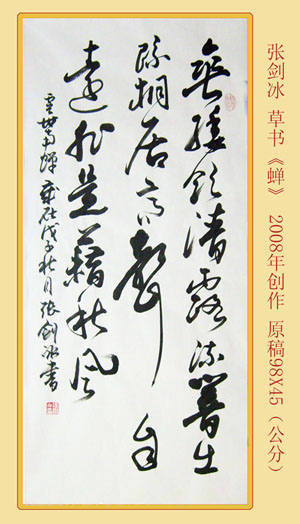 张剑冰 草书 《蝉》 2008年创作 原稿98X45（公分）
垂緌飲清露流響出
疏桐居高聲自
遠非是藉秋風
虞世南蟬 歲在戊子秋月 張劍冰書